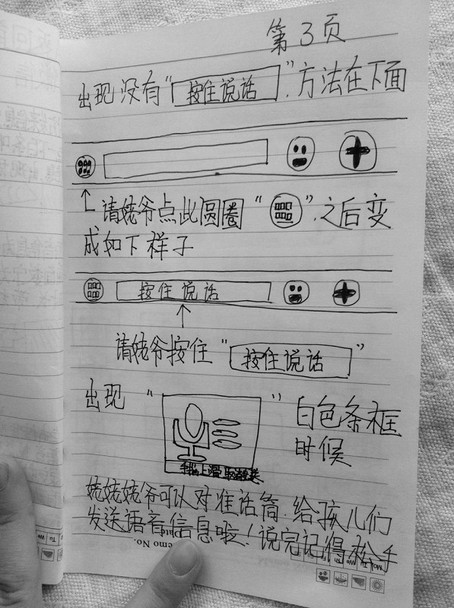 第3页
出现没有“按住说话”.方法在下面
请姥爷点此圆圈“ ”.之后变
成如下样子
按住说话
请姥爷按住“按住说话”
出现“ ”白色条框
手指上滑取消发送
时候
姥姥姥爷可以对准话筒.给孩儿们
发送语音信息啦!说完记得松手
Memo No.